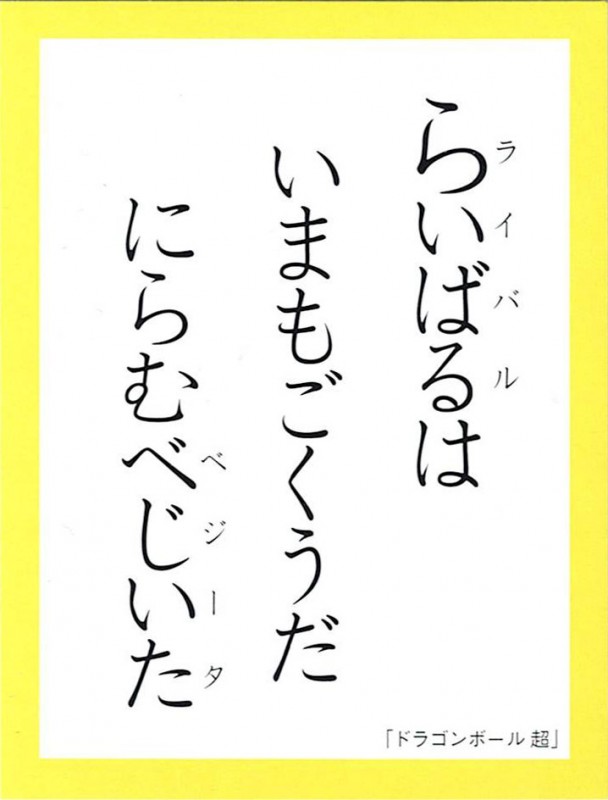 らいばるは
ライバル
いまもごくうだ
にらむべじいた
ベジータ
「ドラゴンボール 超」